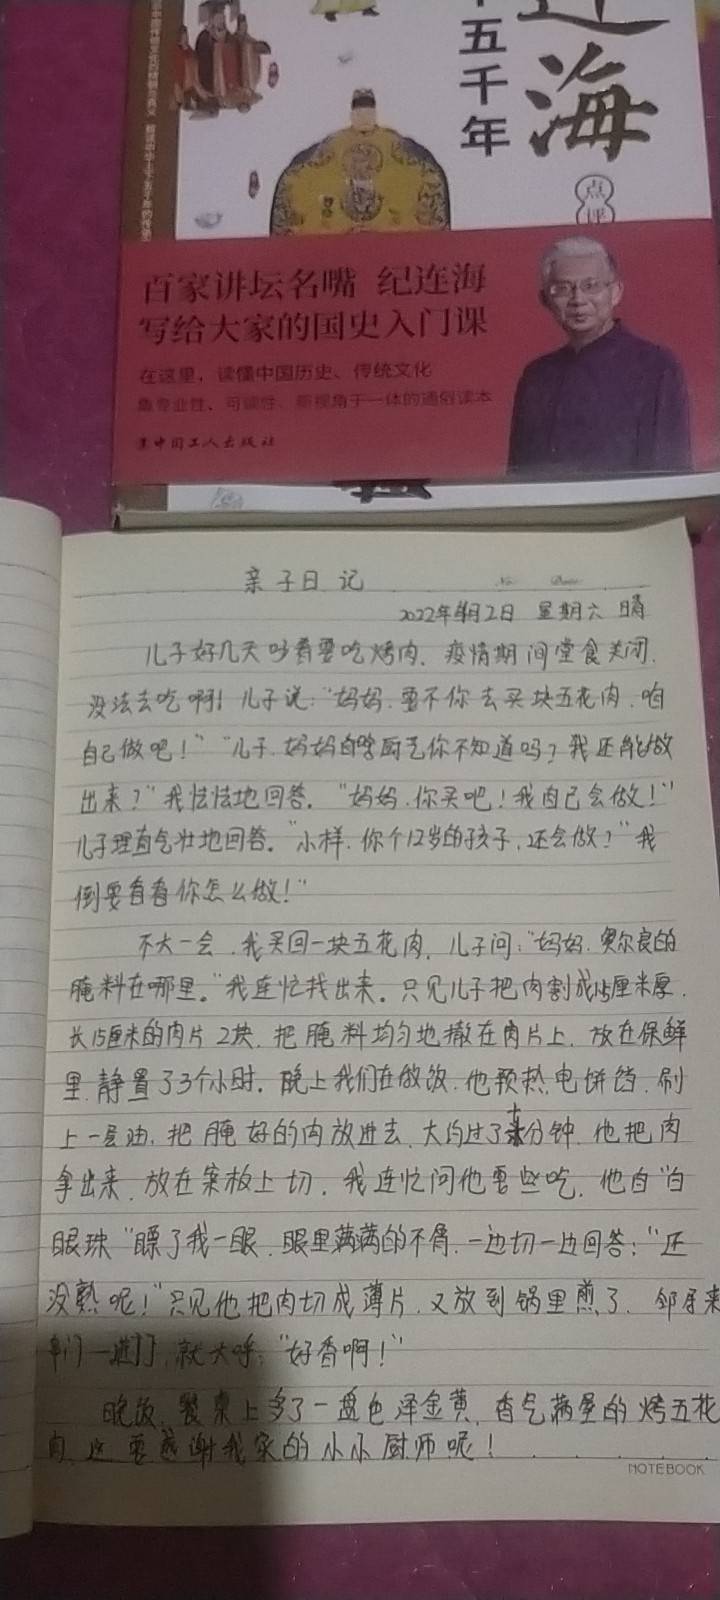 五千年
海
点评
百家讲坛名嘴 纪连海
写给大家的国史入门课
在这里，读懂中国历史、传统文化
集专业性、可读性、新视角于一体的通俗读本
中国工人出版社
亲子日记
No. Date
2022年4月2日 星期六 晴
儿子好几天吵着要吃烤肉，疫情期间堂食关闭，
没法去吃啊！儿子说：“妈妈，要不你去买块五花肉，咱
自己做吧！”“儿子，妈妈的厨艺你不知道吗？我还能做
出来？”我怯怯地回答。“妈妈，你买吧！我自己会做！”
儿子理直气壮地回答。“小样，你个12岁的孩子，还会做？”我
倒要看看你怎么做！”
不大一会，我买回一块五花肉，儿子问：“妈妈，奥尔良的
腌料在哪里。”我连忙找出来。只见儿子把肉割成1.5厘米厚，
长15厘米的肉片2块，把腌料均匀地撒在肉片上，放在保鲜
里，静置了3个小时。晚上我们在做饭，他预热电饼铛，刷
上一层油，把腌好的肉放进去，大约过了十分钟，他把肉
拿出来，放在案板上切，我连忙问他要些吃，他白“白
眼珠”瞟了我一眼，眼里满满的不屑，一边切一边回答：“还
没熟呢！”只见他把肉切成薄片，又放到锅里煎了，邻居来
串门一进门，就大呼：“好香啊！”
晚饭，餐桌上多了一盘色泽金黄，香气满屋的烤五花
肉，这要感谢我家的小小厨师呢！
NOTEBOOK